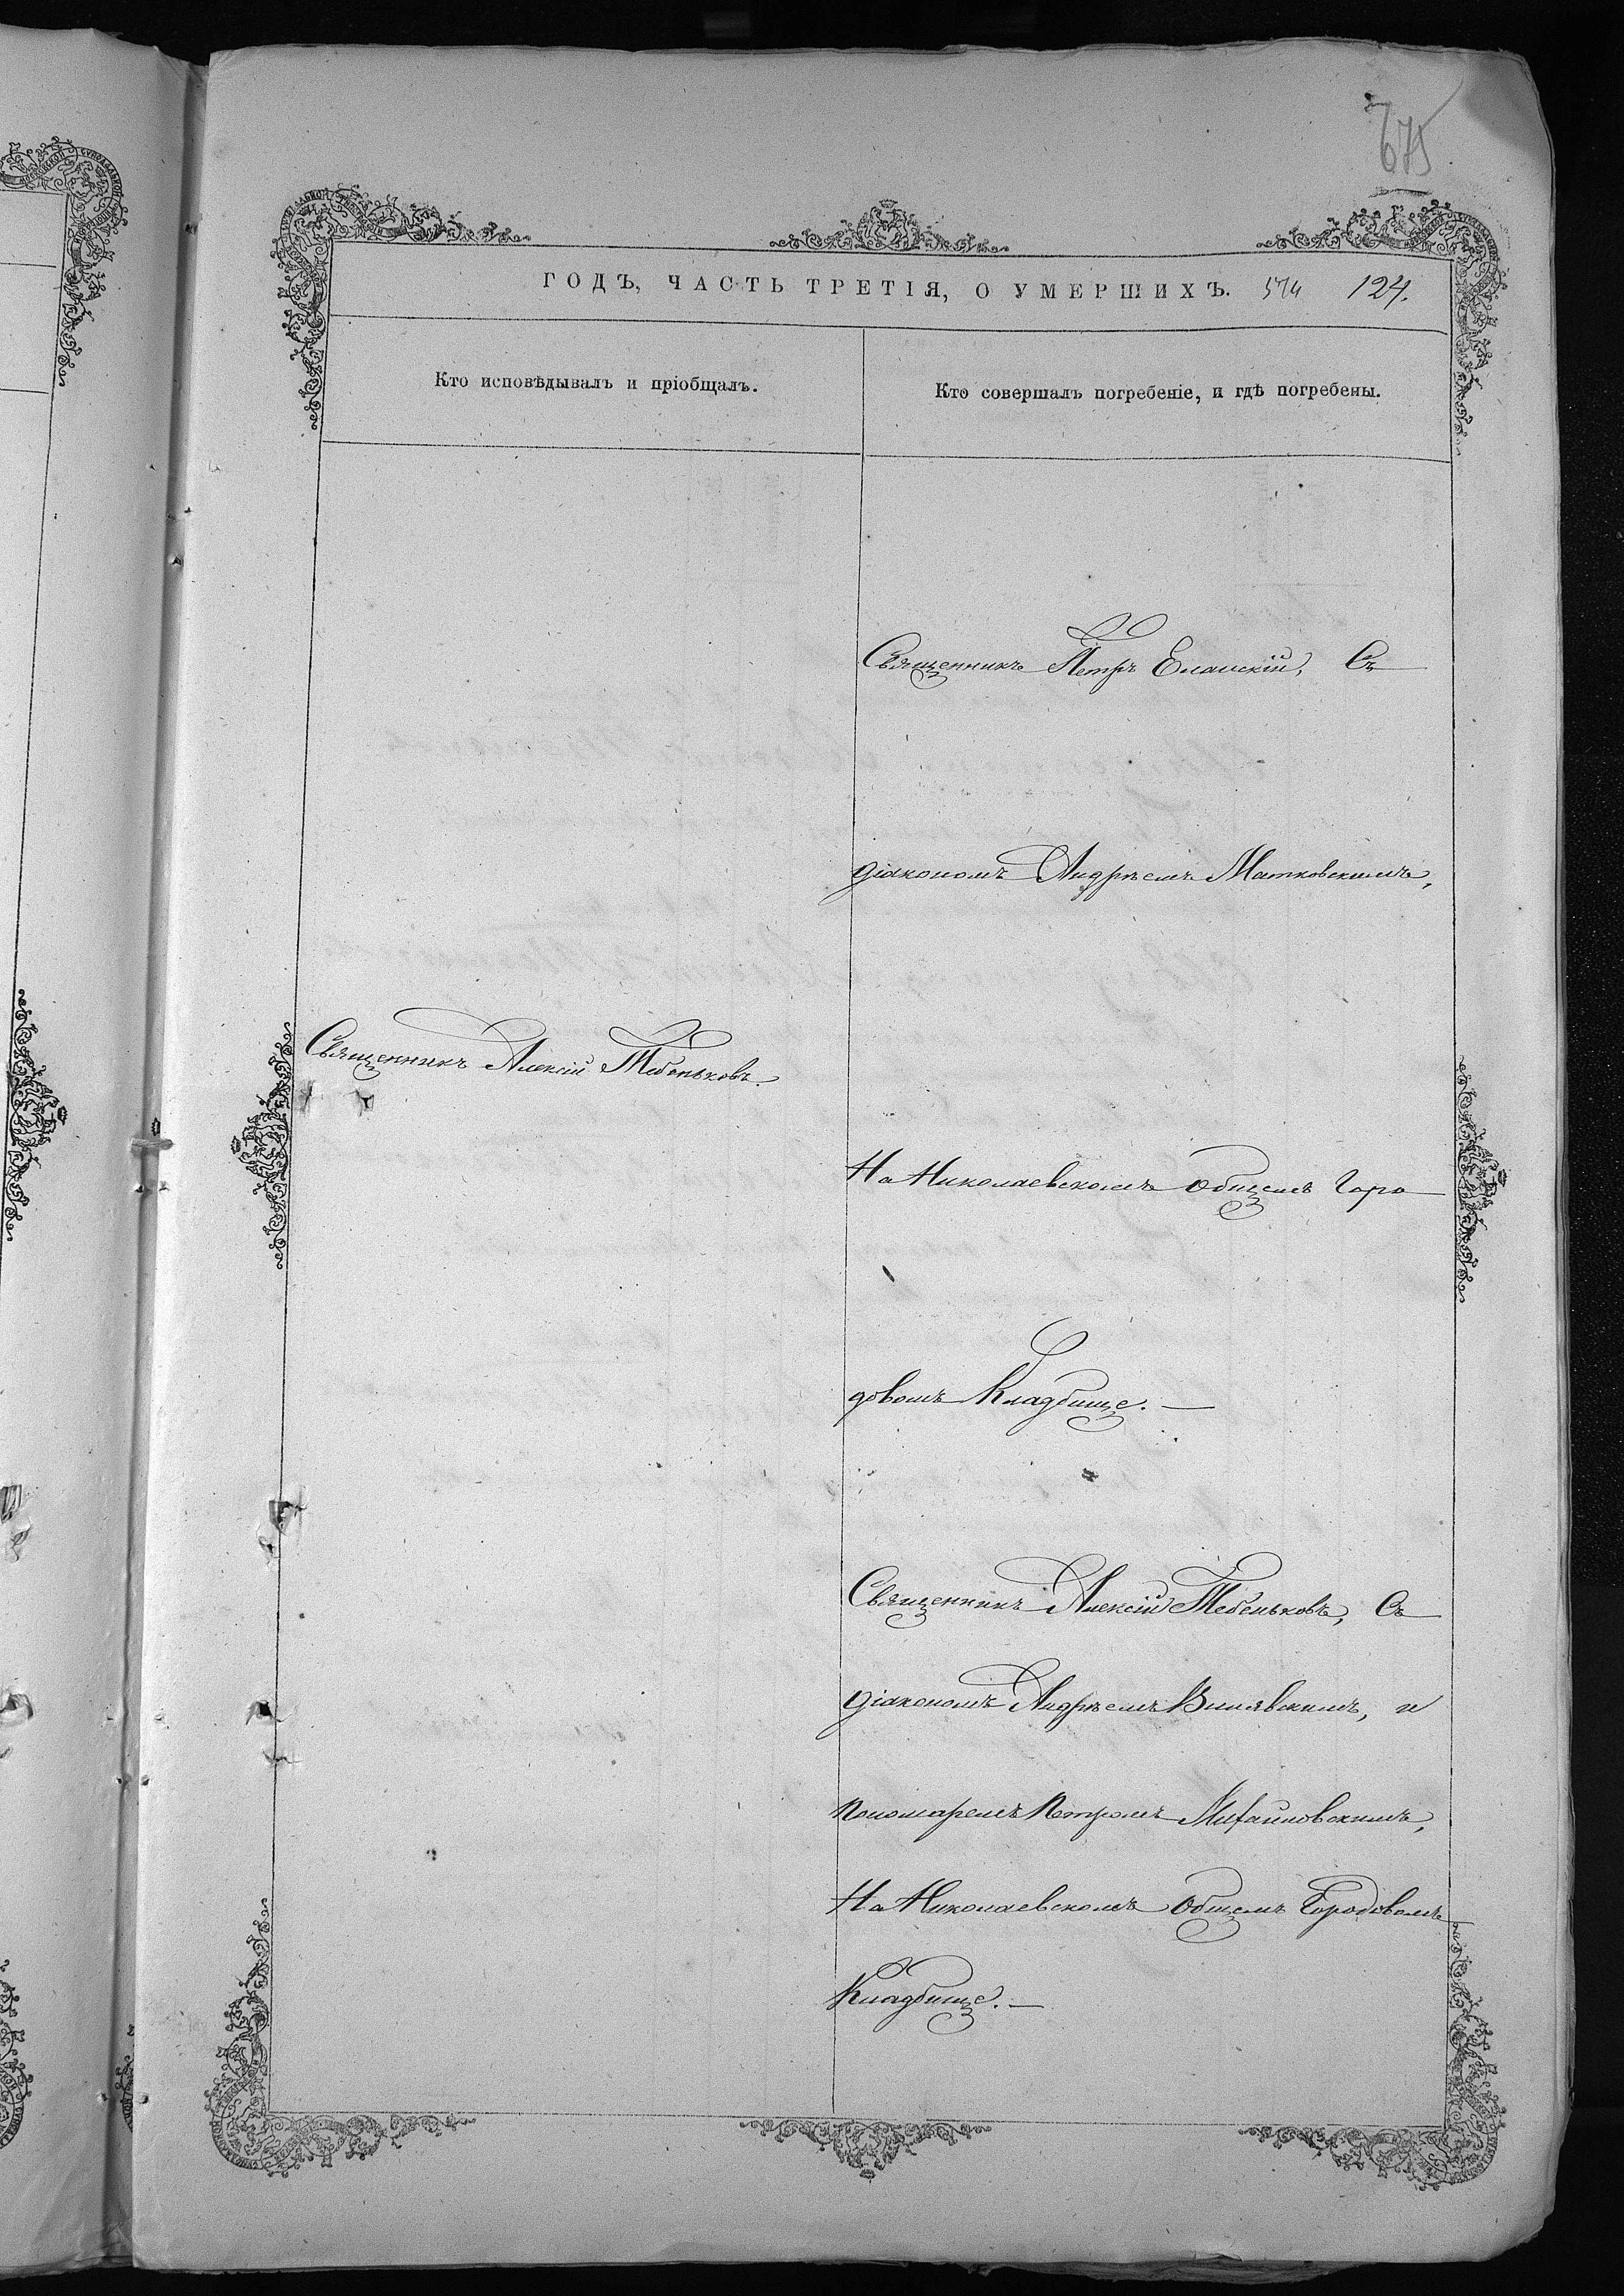 675
ГОДЪ, ЧАСТЬ ТРЕТІЯ, О УМЕРШИХЪ. 574 124.
Кто исповѣдывалъ и пріобщалъ.
Кто совершалъ погребеніе, и гдѣ погребены.
Священникъ Алексій Тебеньковъ.
Священникъ Петръ Еланскій, Съ
діакономъ Андреемъ Матковскимъ,
На Николаевскомъ Общемъ Горо
довомъ Кладбище. —
Священникъ Алексій Тебеньковъ, Съ
діакономъ Андреемъ , и
Пономаремъ Петромъ Михайловскимъ,
На Николаевскомъ Общемъ Городовомъ
Кладбище. —